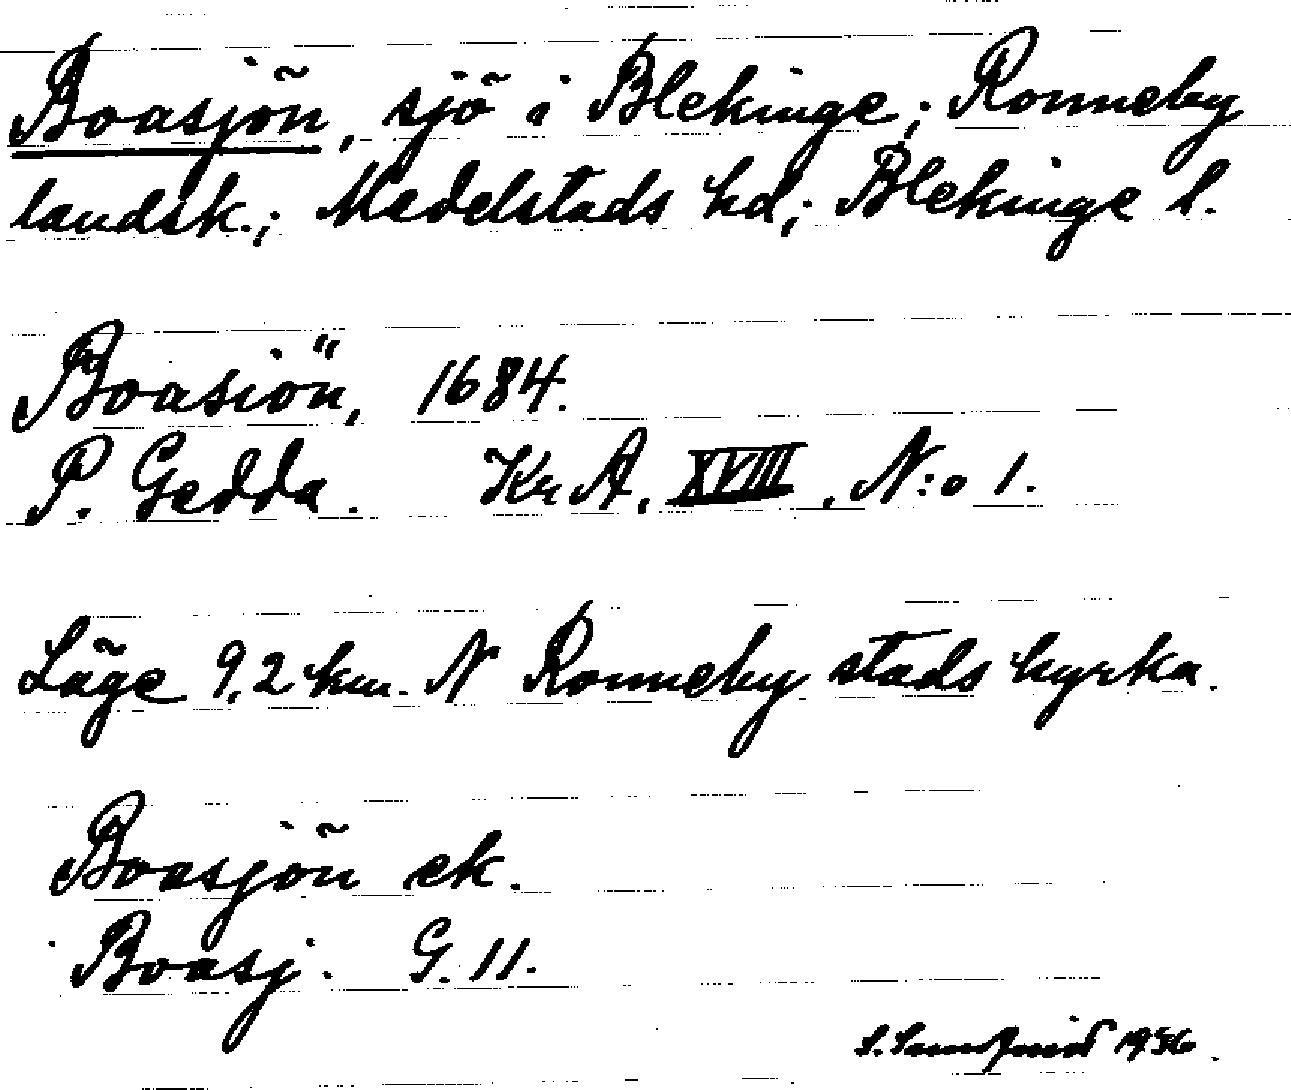 Boasjön, sjö i Blekinge; Ronneby
landsk.; Medelstads hd; Blekinge l.
Boasiön, 1684.
P. Gedda. Kr A, XVIII, N:o 1.
Läge 9,2 km. N Ronneby stads kyrka.
Boasjön ek.
Boasj. G. 11.
1936.